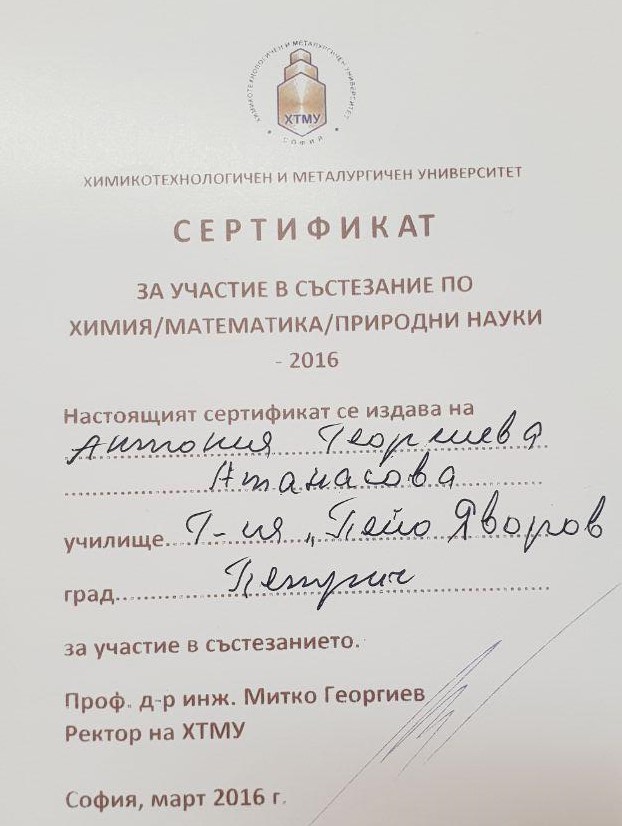 ХИМИКОТЕХНОЛОГИЧЕН И МЕТАЛУРГИЧЕН УНИВЕРСИТЕТ
ХТМУ
СОФИЯ
ХИМИКОТЕХНОЛОГИЧЕН И МЕТАЛУРГИЧЕН УНИВЕРСИТЕТ
СЕРТИФИКАТ
ЗА УЧАСТИЕ В СЪСТЕЗАНИЕ ПО
ХИМИЯ/МАТЕМАТИКА/ПРИРОДНИ НАУКИ
- 2016
Настоящият сертификат се издава на
Антония Георгиева
Атанасова
училище Г-ия „Пейо Яворов
град Петрич
за участие в състезанието.
Проф. д-р инж. Митко Георгиев
Ректор на ХТМУ
София, март 2016 г.